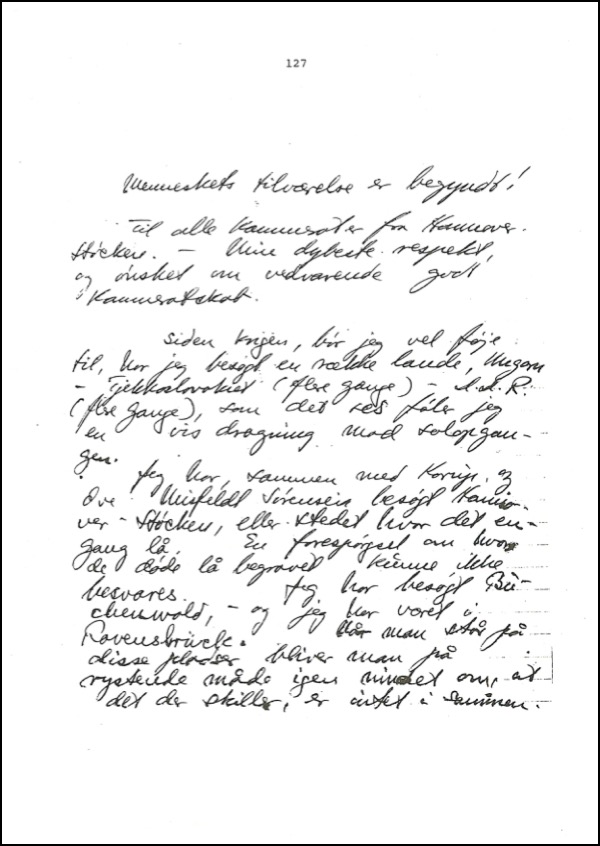 127
Menneskets tilværelse er begyndt!
Til alle Kammerater fra Hannover-
Stöcken. — Min dybeste respekt,
og ønsket om vedvarende godt
Kammeratskab.
Siden krigen, bør jeg vel føje
til, har jeg besøgt en række lande, Ungarn
- Tjekkoslovakiet (flere gange) -
(flere gange), som det ses føler jeg
en vis dragning mod solopgan-
gen.
Jeg har, sammen med Korup, og
Ove Misfeldt Sørensen besøgt Hanno-
ver-Stöcken, eller stedet hvor det en-
gang lå. En forespørgsel om hvor
de døde lå begravet kunne ikke
besvares. Jeg har besøgt Bu-
chenwald, - og jeg har været i
Ravensbrück. Når man står på
disse pladser bliver man på
rystende måde igen mindet om, at
det der skiller, er intet i sammen.